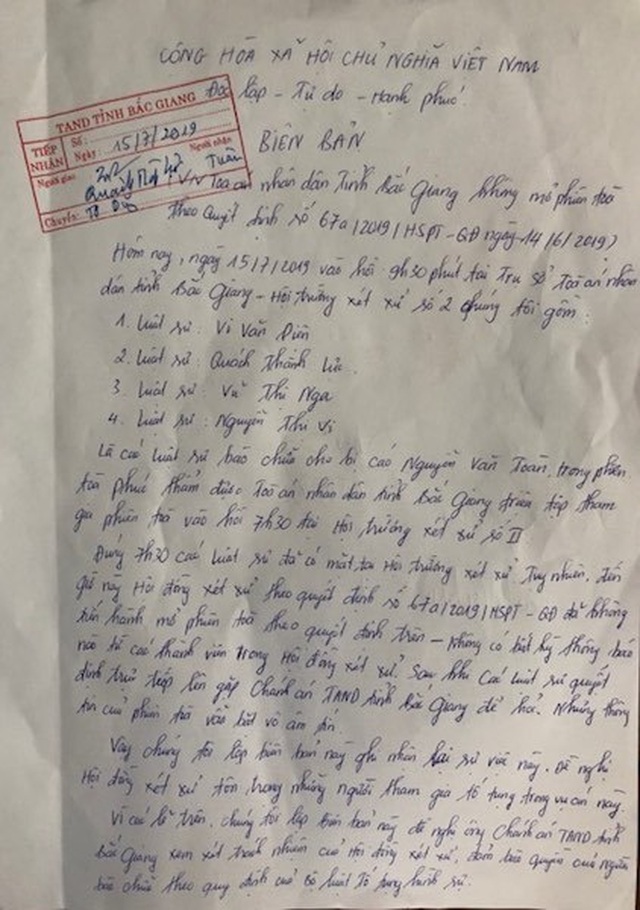 CỘNG HÒA XÃ HỘI CHỦ NGHĨA VIỆT NAM
Độc lập - Tự do - Hạnh phúc
TAND TỈNH BẮC GIANG
TIẾP NHẬN
Số:
Ngày: 15/7/2019
Người giao
Người nhận
Quách
Tuấn
Chuyển:
BIÊN BẢN
(V/v Toà án nhân dân tỉnh Bắc Giang không mở phiên toà
theo quyết định số 67a/2019/HSPT-QĐ ngày 14/6/2019)
Hôm nay, ngày 15/7/2019 vào hồi 9h30 phút tại Trụ sở Toà án nhân
dân tỉnh Bắc Giang - Hội trường xét xử số 2 chúng tôi gồm:
1. Luật sư: Vi Văn Diện
2. Luật sư: Quách Thành Lực
3. Luật sư: Vũ Thị Nga
4. Luật sư: Nguyễn Thị Vi
Là các luật sư bào chữa cho bị cáo Nguyễn Văn Toàn, trong phiên
toà phúc thẩm được Toà án nhân dân tỉnh Bắc Giang triệu tập tham
gia phiên toà vào hồi 7h30 tại Hội trường xét xử số II
Đúng 7h30 các luật sư đã có mặt tại Hội trường xét xử. Tuy nhiên, đến
giờ này Hội đồng xét xử theo quyết định số 67a/2019/HSPT-QĐ đã không
tiến hành mở phiên toà theo quyết định trên - Không có bất kỳ thông báo
nào từ các thành viên trong Hội đồng xét xử. Sau khi các luật sư quyết
định trực tiếp lên gặp Chánh án TAND tỉnh Bắc Giang để hỏi. Nhưng thông
tin của phiên toà vẫn bặt vô âm tín.
Vậy chúng tôi lập biên bản này ghi nhận lại sự việc này. Đề nghị
Hội đồng xét xử tôn trọng những người tham gia tố tụng trong vụ án này.
Vì các lẽ trên, chúng tôi lập biên bản này đề nghị ông Chánh án TAND tỉnh
Bắc Giang xem xét trách nhiệm của Hội đồng xét xử, đảm bảo quyền của người
bào chữa theo quy định của Bộ luật Tố tụng hình sự.